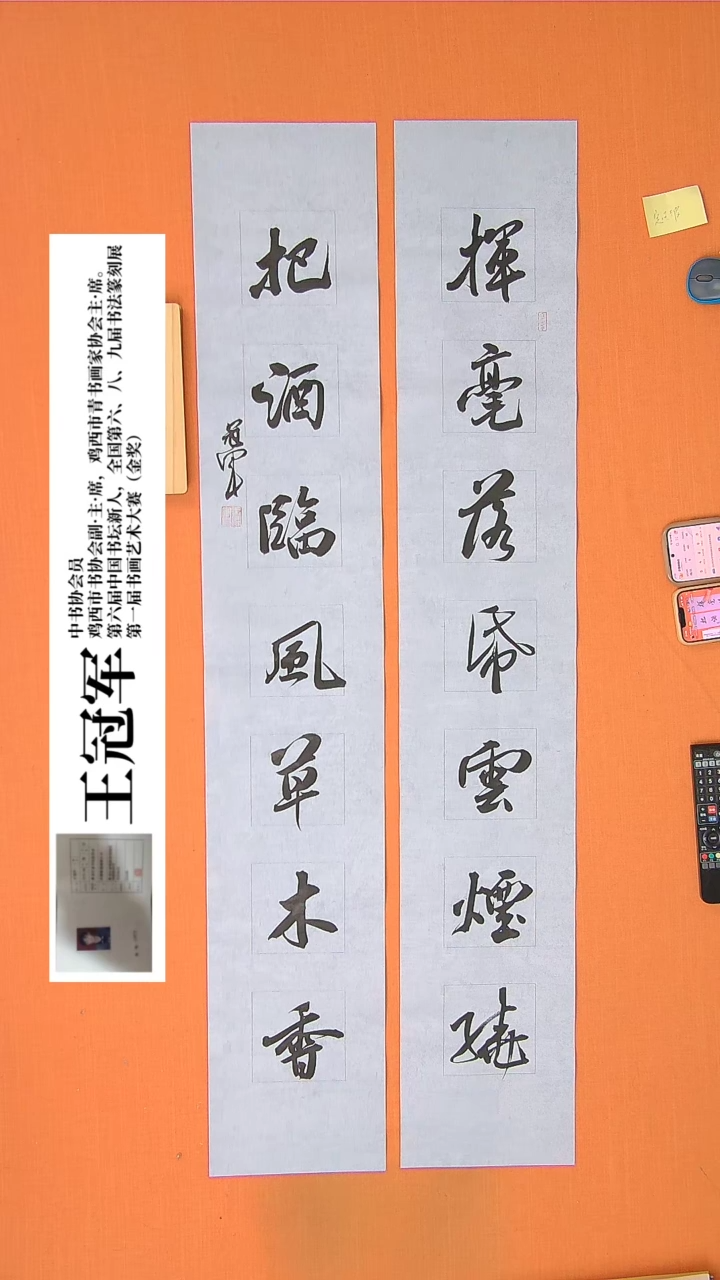 揮毫落帋雲煙繞
把酒臨風草木香
冠軍
王冠军
中书协会员
鸡西市书协会副·主·席，鸡西市青书画家协会主·席。
第六届中国书坛新人，全国第六、八、九届书法篆刻展
第一届书画艺术大赛（金奖）